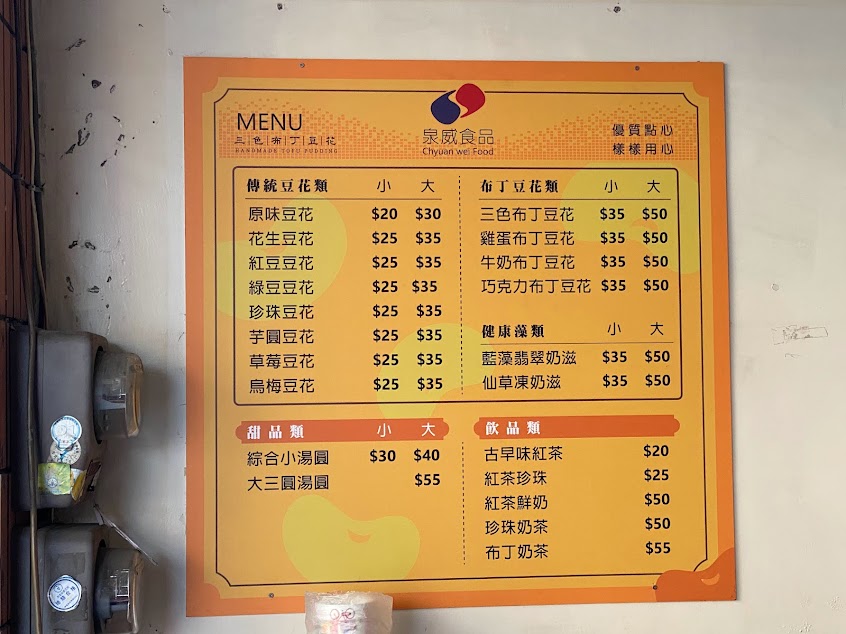 MENU
三色布丁豆花
HANDMADE TOFU PUDDING
泉威食品
Chyuan wei Food
優質點心
樣樣用心
傳統豆花類 小 大
原味豆花 $20 $30
花生豆花 $25 $35
紅豆豆花 $25 $35
綠豆豆花 $25 $35
珍珠豆花 $25 $35
芋圓豆花 $25 $35
草莓豆花 $25 $35
烏梅豆花 $25 $35
布丁豆花類 小 大
三色布丁豆花 $35 $50
雞蛋布丁豆花 $35 $50
牛奶布丁豆花 $35 $50
巧克力布丁豆花 $35 $50
健康藻類 小 大
藍藻翡翠奶滋 $35 $50
仙草凍奶滋 $35 $50
甜品類 小 大
綜合小湯圓 $30 $40
大三圓湯圓 $55
飲品類
古早味紅茶 $20
紅茶珍珠 $25
紅茶鮮奶 $50
珍珠奶茶 $50
布丁奶茶 $55